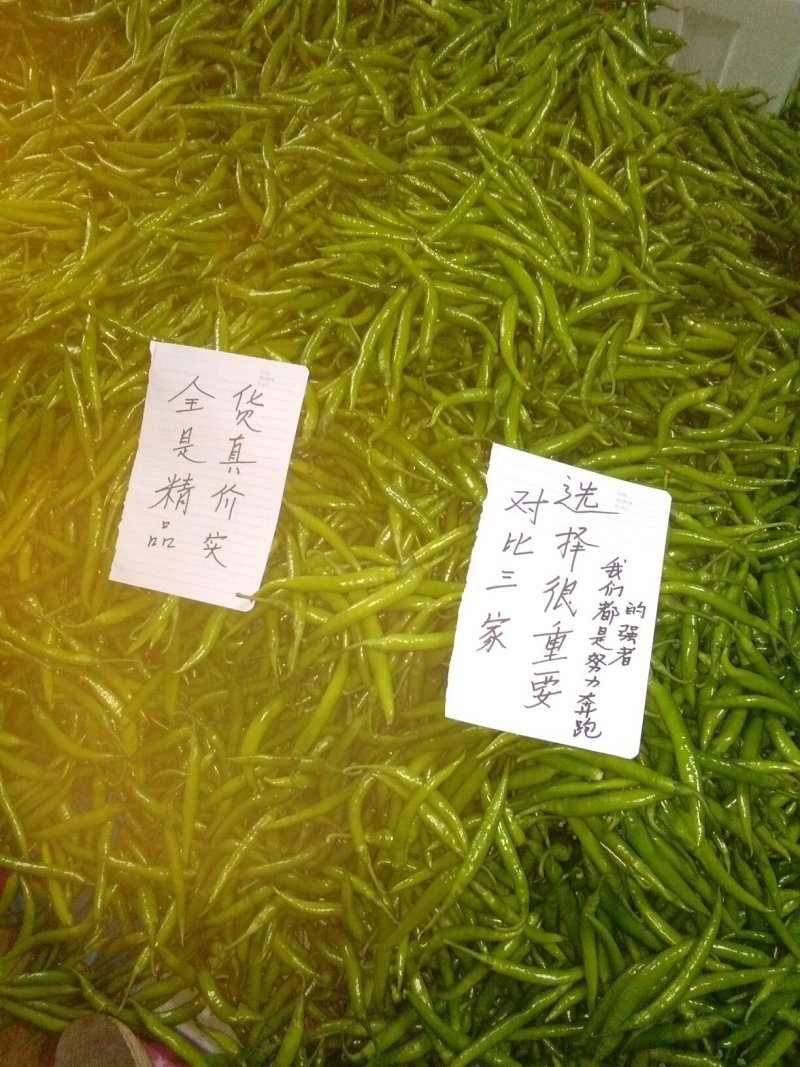 全是精品
货真价实
对比三家
选择很重要
我们都是努力奔跑
的强者